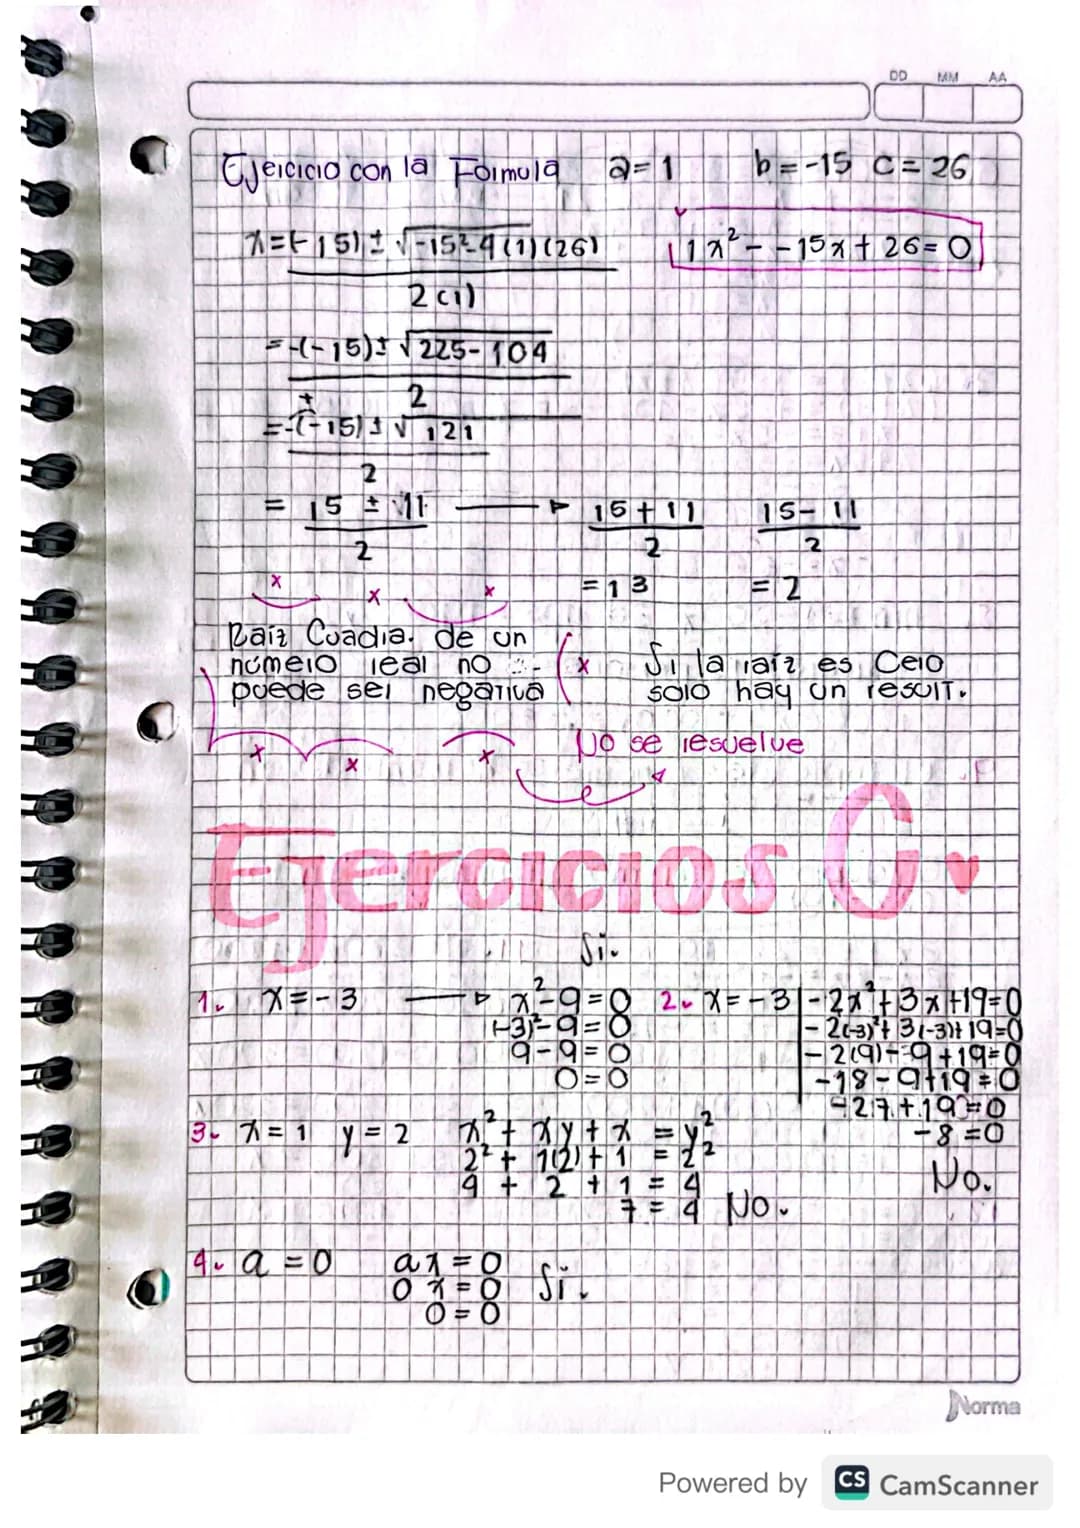 DD MM AA
Ejercicio con la Formula a=1 b=-15 c=26
x=(-15)±√-15²-4(1)(26)
2(1)
1x²--15x+26=0
=-(-15)±√225-104
2
+
=-(-15)±√121
2
= 15 ± 11 15+11 15-11
2 2 2
=13 =2
Raíz Cuadra. de un
número real no
puede ser negativa
x Si la raíz es Cero
solo hay un result.
No se resuelve
Ejercicios C
Si.
1. x=-3 x²-9=0
(-3)²-9=0
9-9=0
0=0
2. x=-3 -2x²+3x+19=0
-2(-3)²+3(-3)+19=0
-2(9)-9+19=0
-18-9+19=0
-27+19=0
-8=0
No.
3. x=1 y=2 x²+xy+x=y²
2²+1(2)+1=2²
4+2+1=4
7=4 No.
4. a=0 ax=0
0x=0 Si.
0=0
Norma
Powered by CS CamScanner